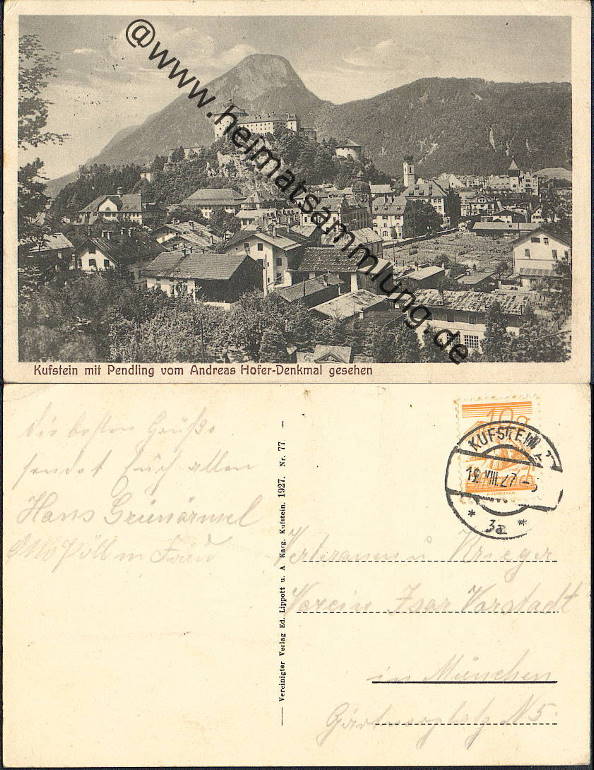 @www.heimatsammlung.de
Kufstein mit Pendling vom Andreas Hofer-Denkmal gesehen
Die besten Grüße
sendet Euch allen
Hans Grünärmel
Frau
Vereinigter Verlag Ed. Lippott u. A Karg. Kufstein. 1927. Nr. 77 —
10g
KUFSTEIN
VIII.27
* 3a *
Veteranen u Krieger
Verein Isar Vorstadt
in München
Gärtnerplatz N 5